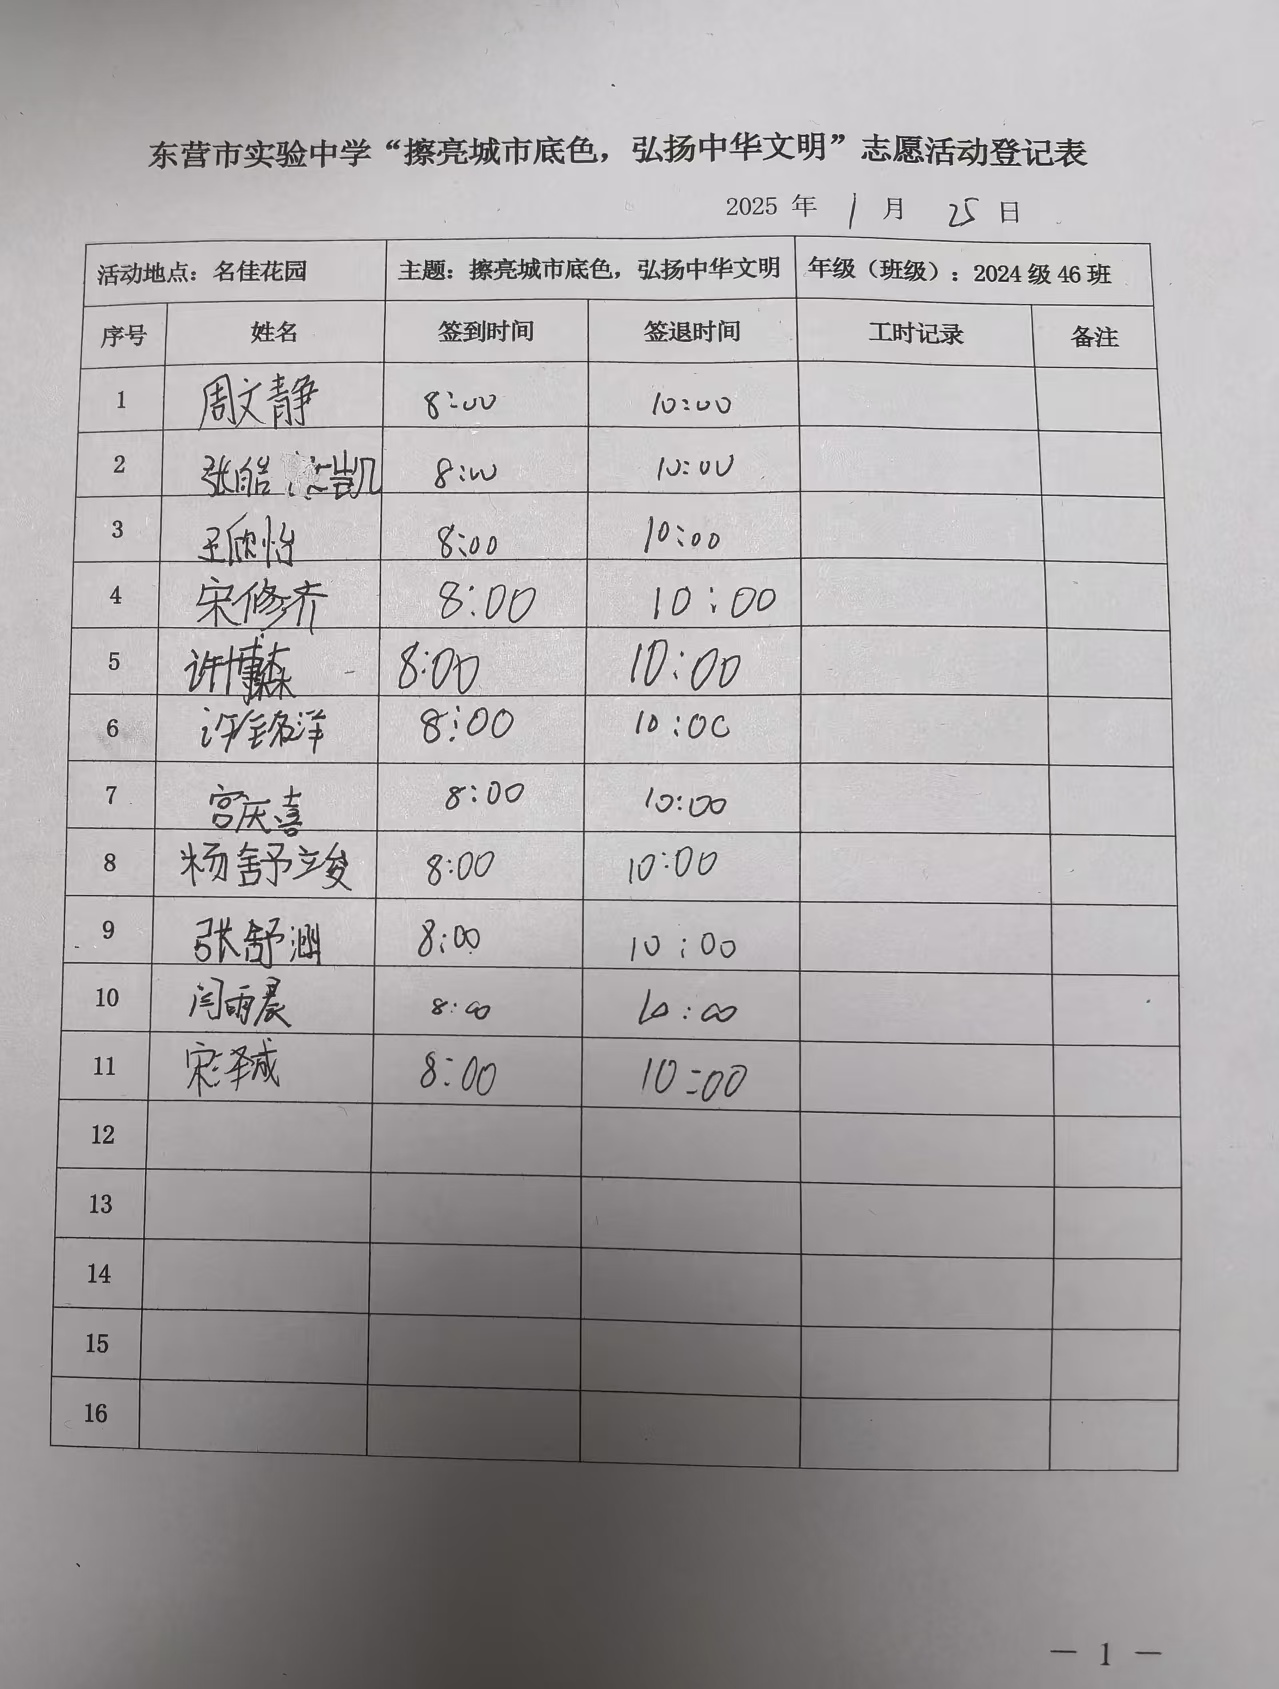 东营市实验中学“擦亮城市底色，弘扬中华文明”志愿活动登记表
2025 年 1 月 25 日
活动地点：名佳花园 主题：擦亮城市底色，弘扬中华文明 年级（班级）：2024 级 46 班
序号 姓名 签到时间 签退时间 工时记录 备注
1 周文静 8:00 10:00
2 张皓 凯 8:00 10:00
3 王欣怡 8:00 10:00
4 宋修齐 8:00 10:00
5 许博森 8:00 10:00
6 许铭洋 8:00 10:00
7 宫庆喜 8:00 10:00
8 杨舒立俊 8:00 10:00
9 张舒涵 8:00 10:00
10 闫雨晨 8:00 10:00
11 宋泽诚 8:00 10:00
12
13
14
15
16
— 1 —